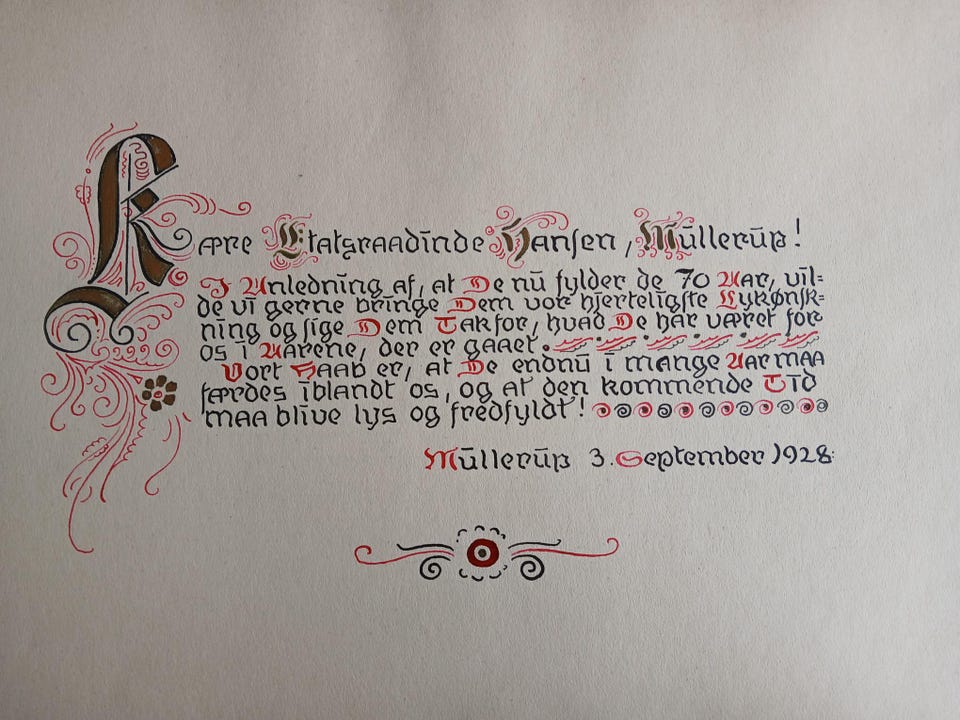 Kære Etatsraadinde Hansen, Müllerup!
I Anledning af, at De nu fylder de 70 Aar, vil=
de vi gerne bringe Dem vor hjerteligste Lykønsk=
ning og sige Dem Tak for, hvad De har været for
os i Aarene, der er gaaet.
Vort Haab er, at De endnu i mange Aar maa
færdes iblandt os, og at den kommende Tid
maa blive lys og fredfyldt!
Müllerup 3. September 1928.